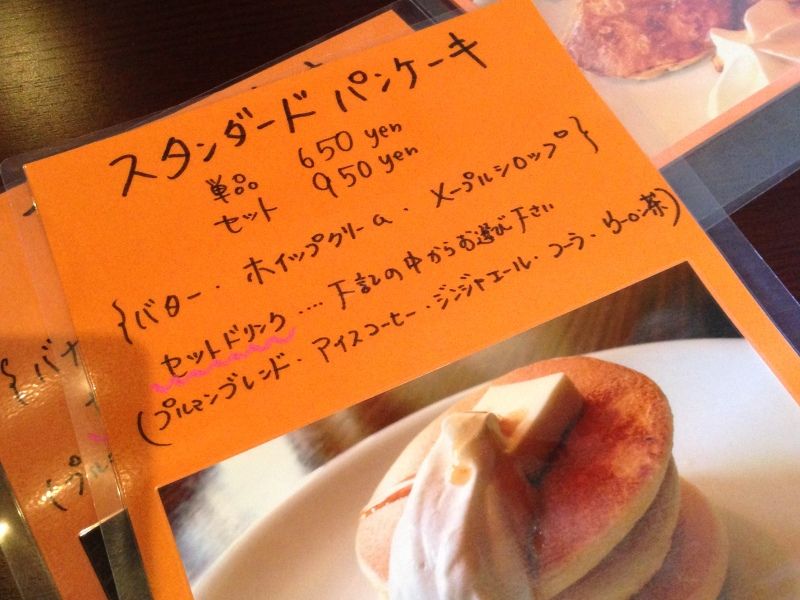 スタンダード パンケーキ
単品 650 yen
セット 950 yen
{バター・ホイップクリーム・メープルシロップ}
セットドリンク‥‥下記の中からお選び下さい
(プルマンブレンド・アイスコーヒー・ジンジャエール・コーラ・ウーロン茶)
{バタ
(プル